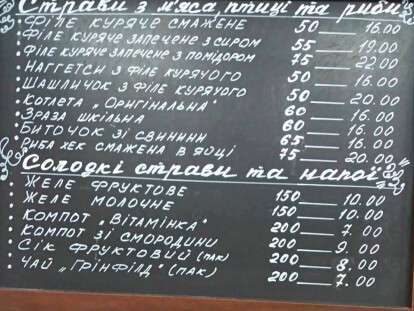 Страви з м'яса птиці та риби
Філе куряче смажене 50 16.00
Філе куряче запечене з сиром 55 19.00
Філе куряче запечене з помідором 75 22.00
Наггетси з філе курячого 50 16.00
Шашличок з філе курячого 50 20.00
Котлета „Оригінальна" 60 16.00
Зраза шкільна 60 16.00
Биточок зі свинини 65 16.00
Риба хек смажена в яйці 75 20.00
Солодкі страви та напої
Желе фруктове 150 10.00
Желе молочне 150 10.00
Компот „Вітамінка" 200 7.00
Компот зі смородини 200 9.00
Сік фруктовий (пак) 200 8.00
Чай „Грінфілд" (пак) 200 7.00